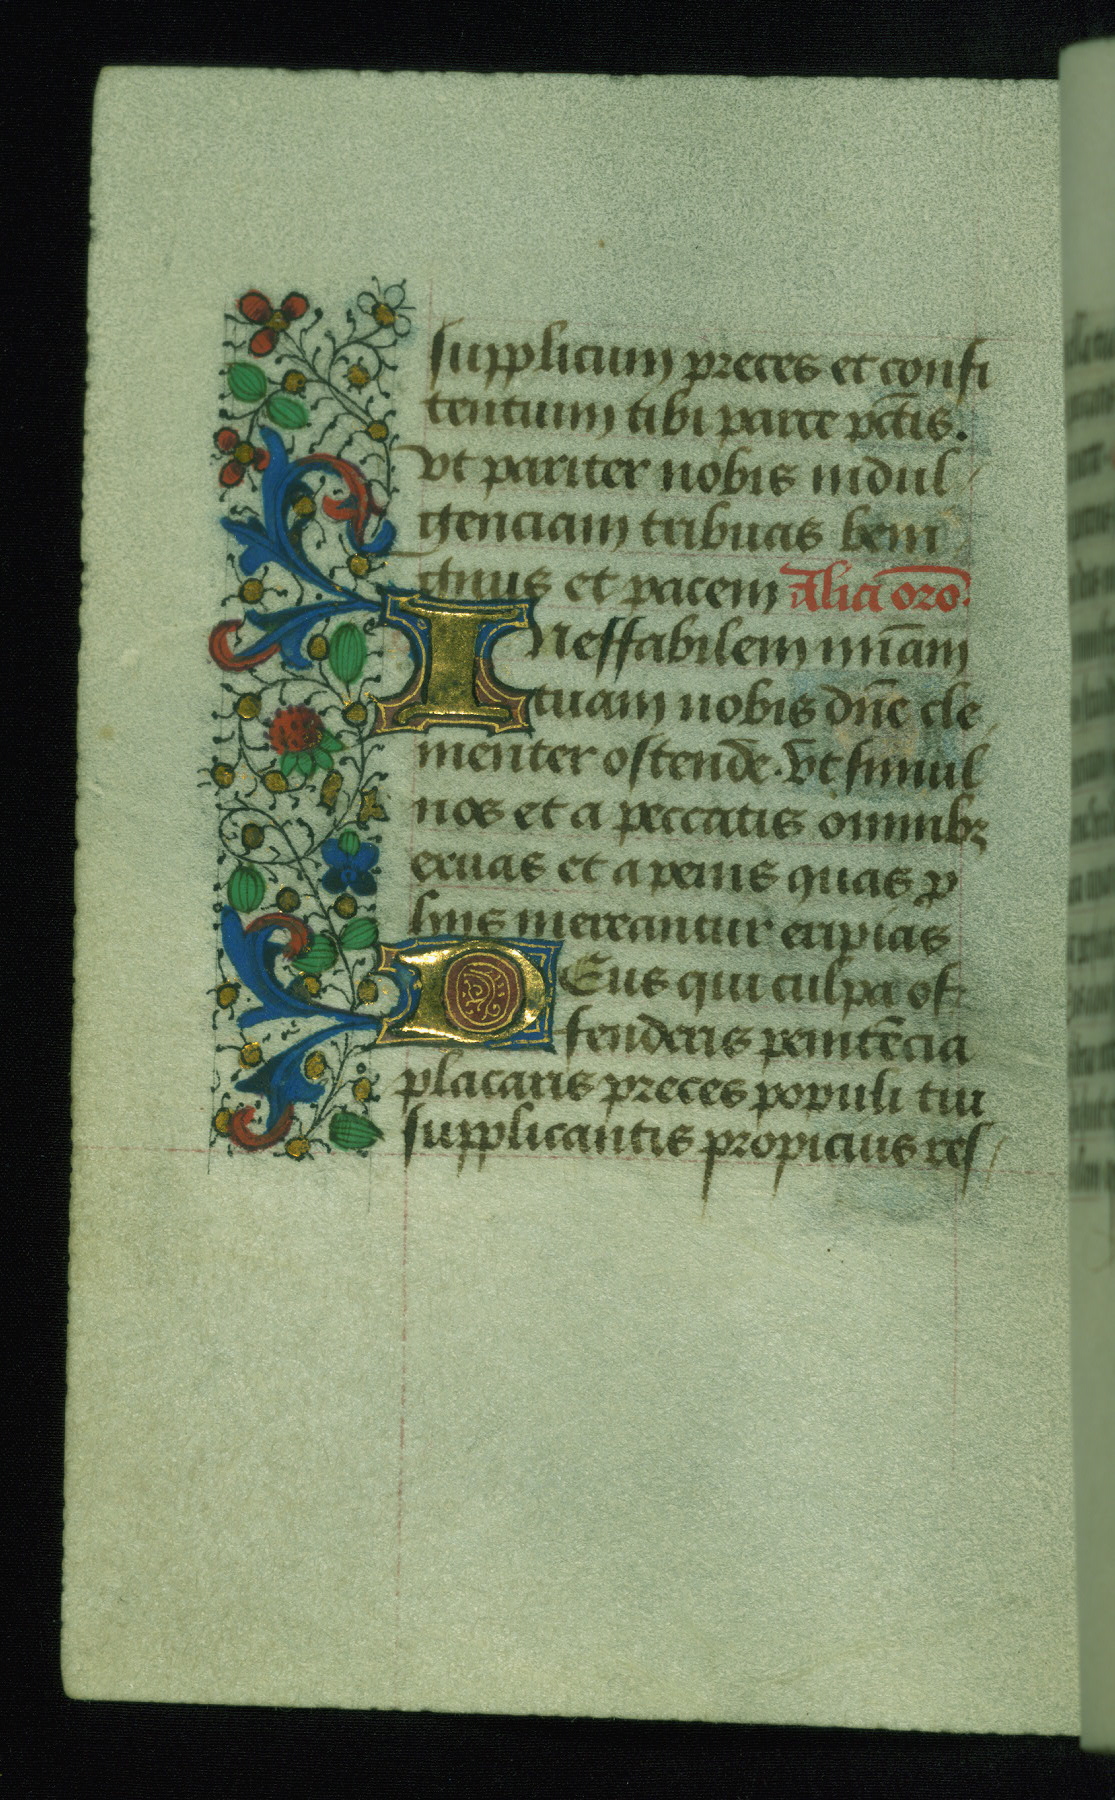 supplicum preces et confi
tentium tibi parce pctīs.
vt pariter nobis indul
genciam tribuas beni
gnus et pacem Alia oro.
INeffabilem miām
tuam nobis dñe cle
menter ostende. Vt simul
nos et a peccatis omnibꝫ
exuas et a penis quas ꝓ
hiis mereantur eripias
DEus qui culpa of
fenderis penitēcia
placaris preces populi tui
supplicantis propicius res